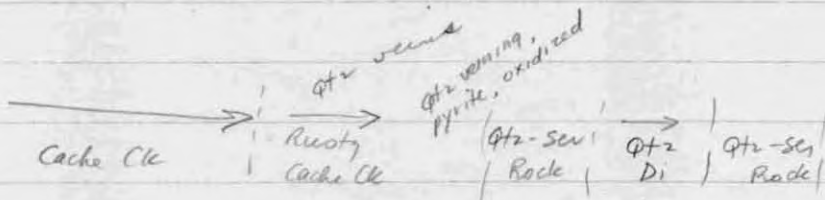 Qtz veins
Qtz veining,
pyrite, oxidized
Cache Ck
Rusty
Cache Ck
Qtz-ser
Rock
Qtz
Di
Qtz-ser
Rock